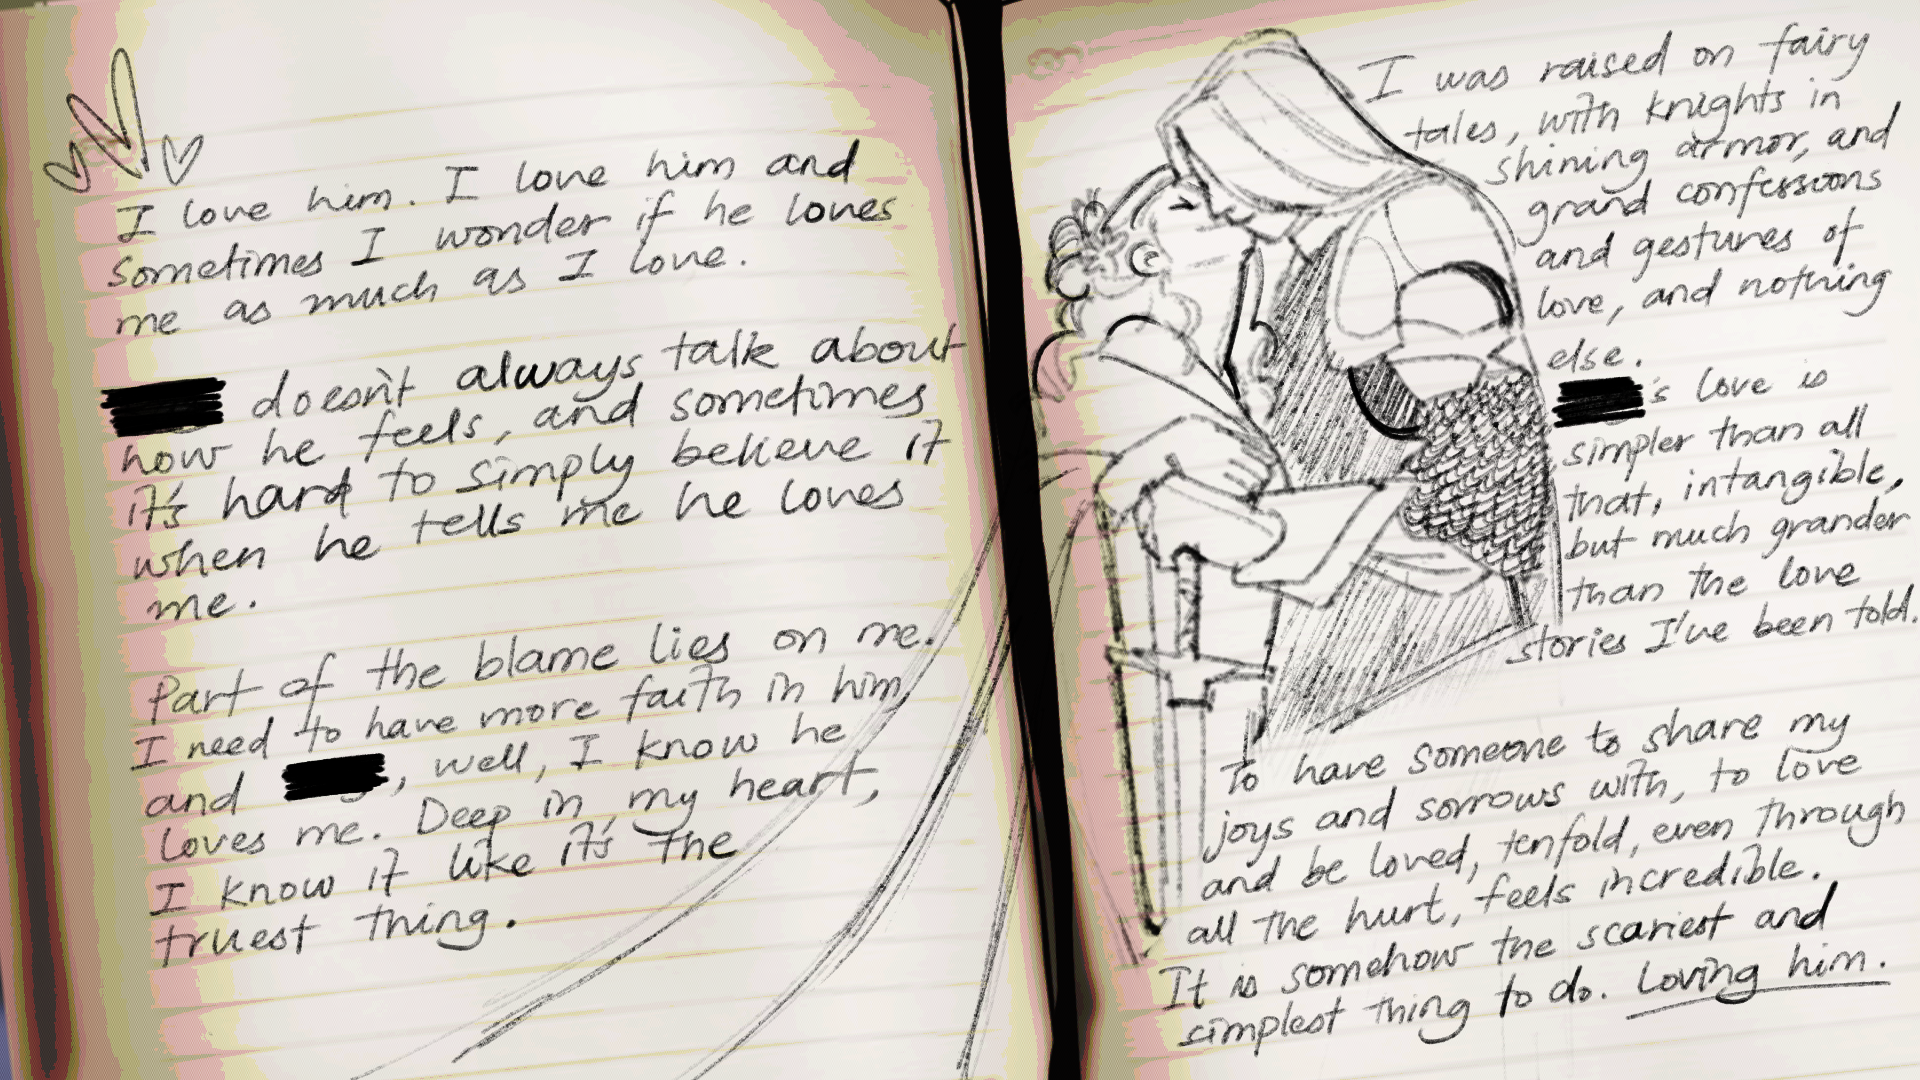 I love him. I love him and
sometimes I wonder if he loves
me as much as I love.
doesn't always talk about
how he feels, and sometimes
it's hard to simply believe it
when he tells me he loves
me.
Part of the blame lies on me.
I need to have more faith in him
and , well, I know he
loves me. Deep in my heart,
I know it like it's the
truest thing.
I was raised on fairy
tales, with knights in
shining armor, and
grand confessions
and gestures of
love, and nothing
else.
's love is
simpler than all
that, intangible,
but much grander
than the love
stories I've been told.
To have someone to share my
joys and sorrows with, to love
and be loved, tenfold, even through
all the hurt, feels incredible.
It is somehow the scariest and
simplest thing to do. Loving him.